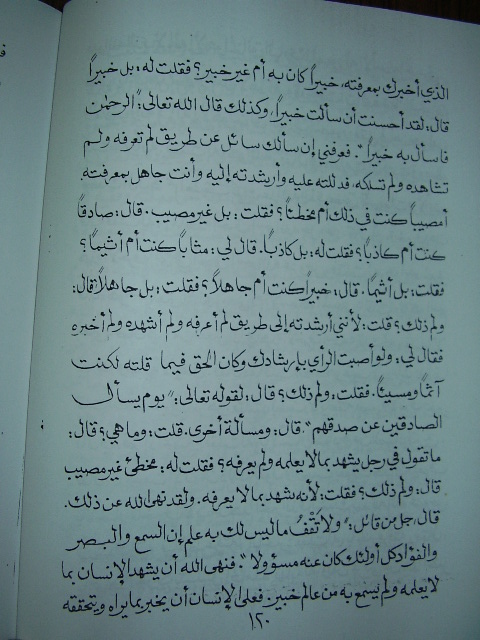 الذي أخبرك بمعرفته، خبيراً كان به أم غير خبير؟ فقلت له: بل خبيراً
قال: لقد أحسنت أن سألت خبيراً، وكذلك قال الله تعالى: "الرحمٰن
فاسأل به خبيراً". فعرفني إن سألك سائل عن طريق لم تعرفه ولم
تشاهده ولم تسلكه، فدللته عليه وأرشدته إليه وأنت جاهل بمعرفته،
أمصيباً كنت في ذلك أم مخطئاً؟ فقلت: بل غير مصيب. قال: صادقاً
كنت أم كاذباً؟ فقلت له: بل كاذباً. قال لي: مثاباً كنت أم أثيماً؟
فقلت: بل أثيماً. قال: خبيراً كنت أم جاهلاً؟ فقلت: بل جاهلاً قال:
ولم ذلك؟ قلت: لأنني أرشدته إلى طريق لم أعرفه ولم أشهده ولم أخبره
فقال لي: ولو أصبت الرأي بإرشادك وكان الحق فيما قلته لكنت
آثماً ومسيئاً. فقلت: ولم ذلك؟ قال: لقوله تعالى: "يوم يسأل
الصادقين عن صدقهم". قال: ومسألة أخرى. قلت: وما هي؟ قال:
ما تقول في رجل يشهد بما لا يعلمه ولم يعرفه؟ فقلت له: مخطئ غير مصيب
قال: ولم ذلك؟ فقلت: لأنه شهد بما لا يعرفه. ولقد نهى الله عن ذلك.
قال، جل من قائل: "ولا تَقْفُ ما ليس لك به علم إن السمع والبصر
والفؤاد كل أولئك كان عنه مسؤولا". فنهى الله أن يشهد الإنسان بما
لا يعلمه ولم يسمع به من عالم خبير. فعلى الإنسان أن يخبر بما يراه ويتحققه
١٢٠